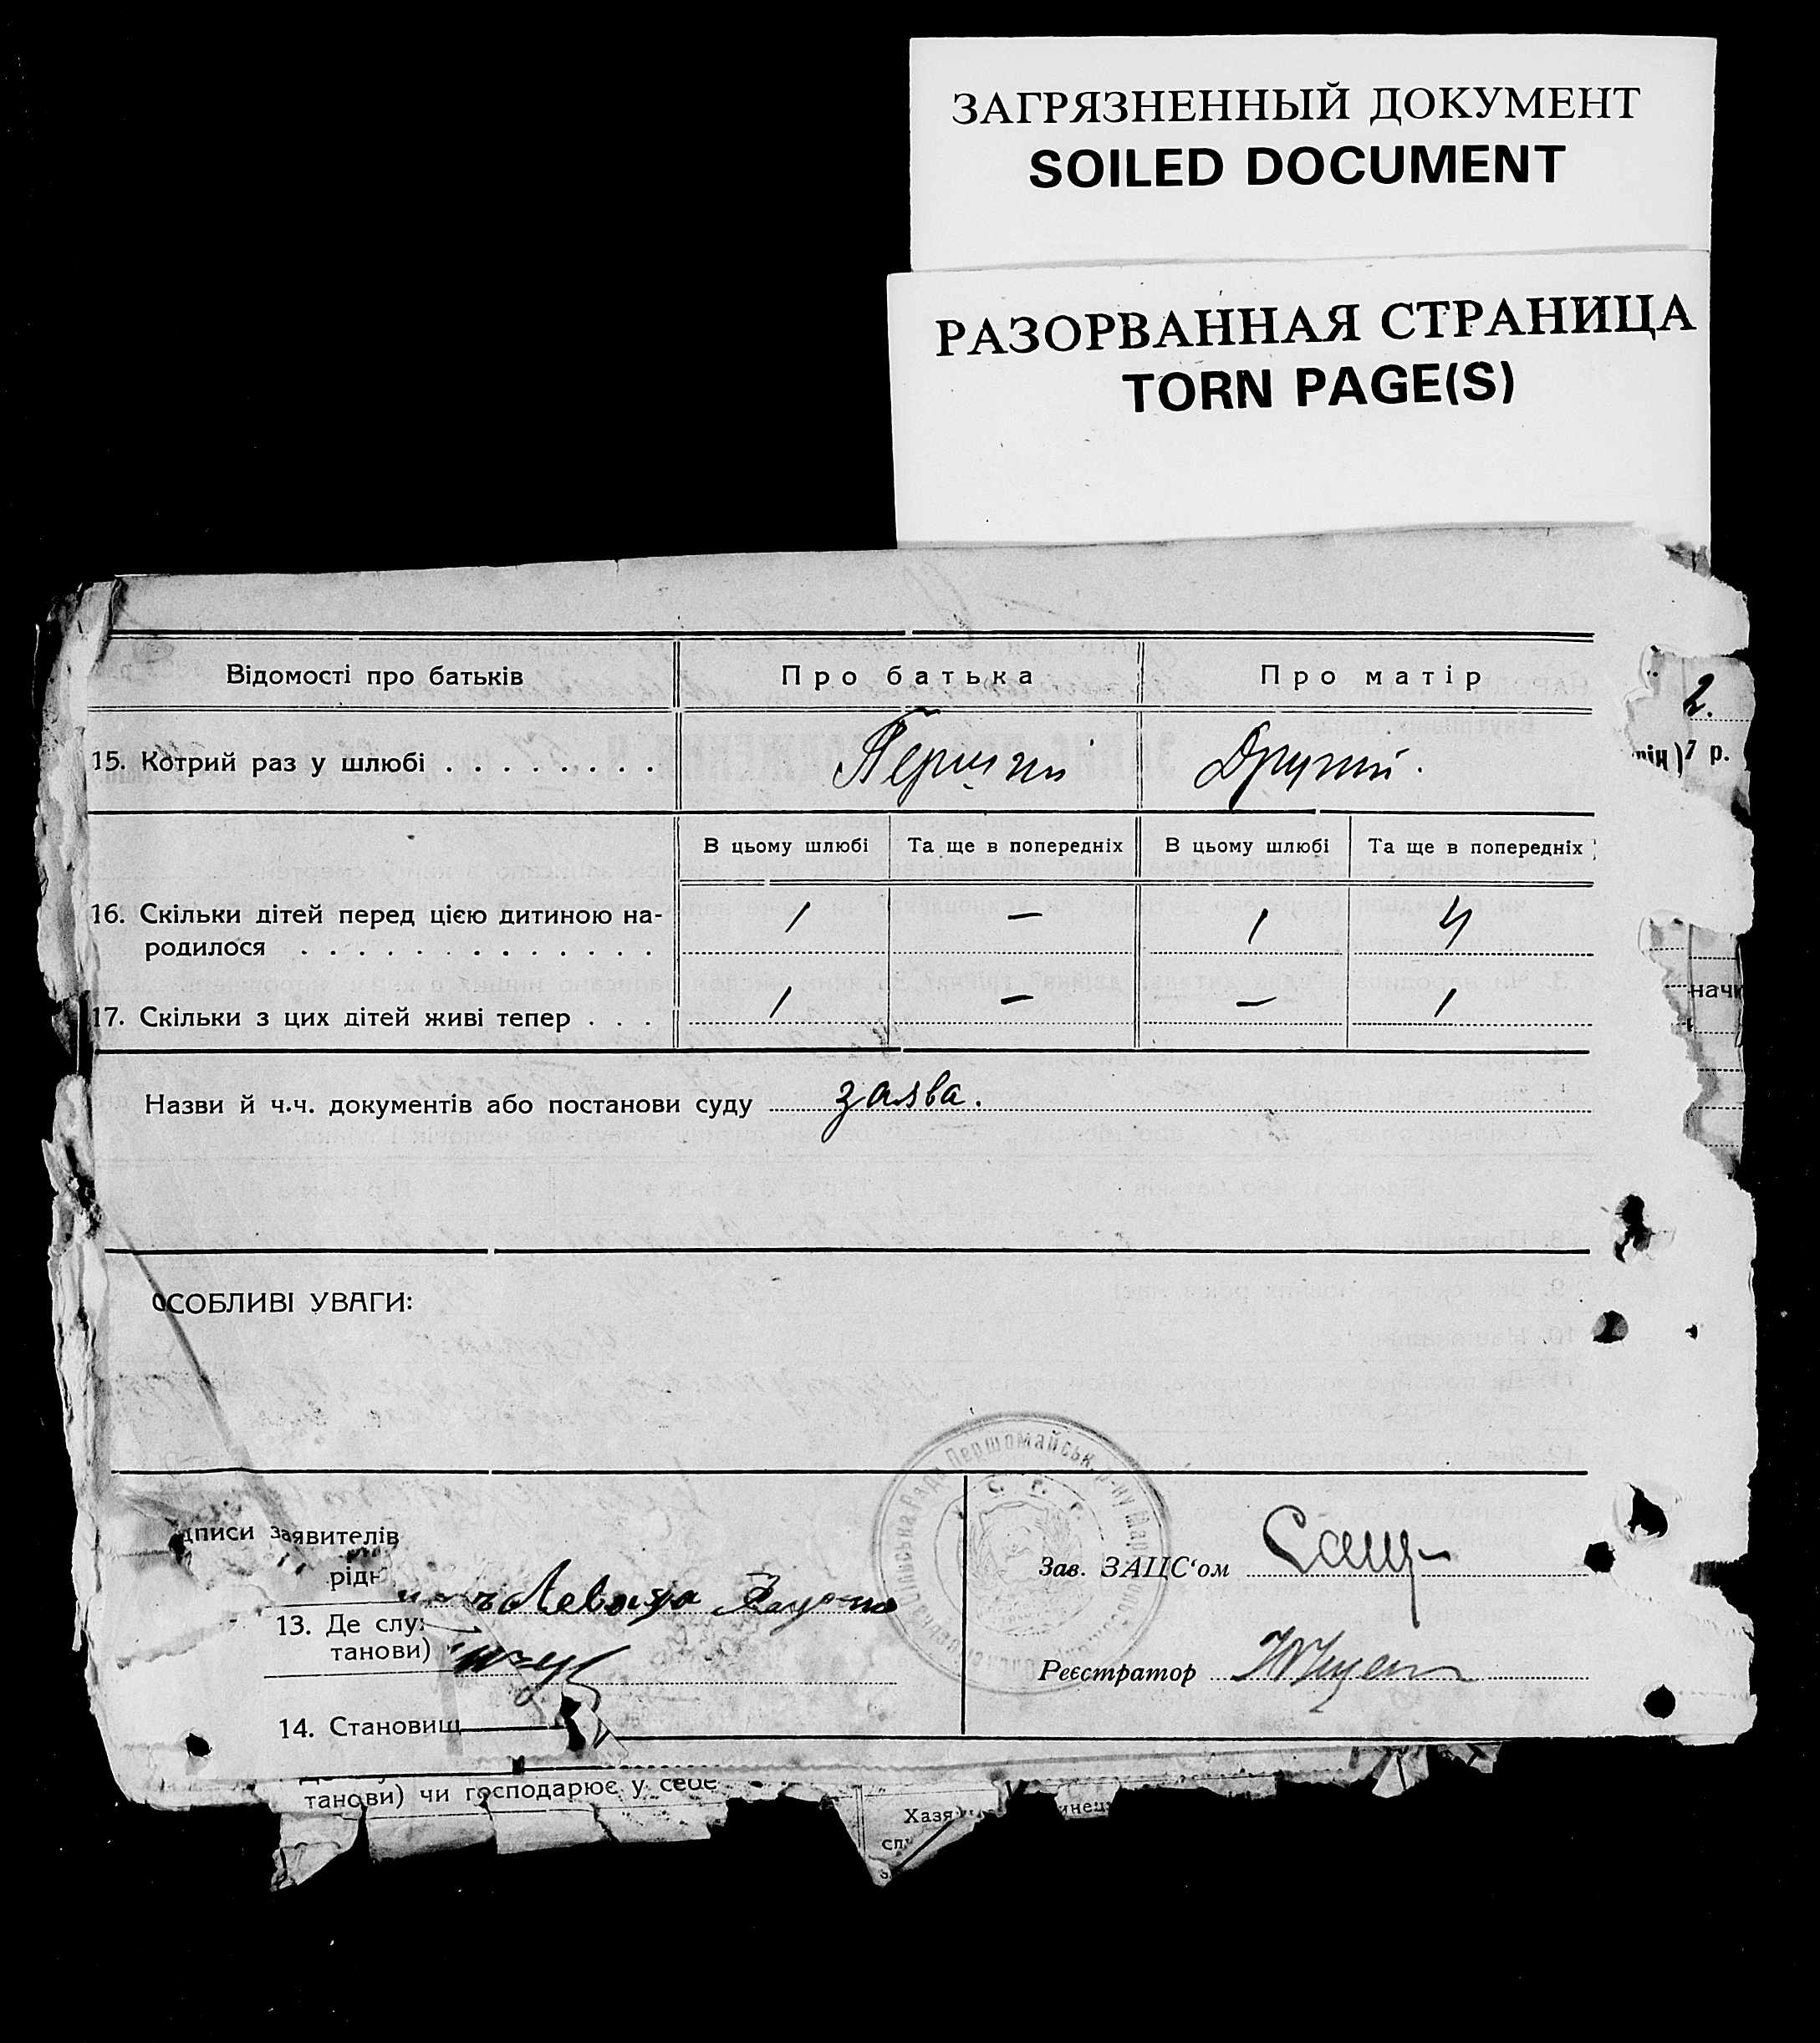 ЗАГРЯЗНЕННЫЙ ДОКУМЕНТ
SOILED DOCUMENT
РАЗОРВАННАЯ СТРАНИЦА
TORN PAGE(S)
Відомості про батьків Про батька Про матір
2.
15. Котрий раз у шлюбі Перший Другий.
7 р.
В цьому шлюбі Та ще в попередніх В цьому шлюбі Та ще в попередніх
16. Скільки дітей перед цією дитиною на-
родилося 1 — 1 4
17. Скільки з цих дітей живі тепер 1 — — 1
Назви й ч.ч. документів або постанови суду заява.
ОСОБЛИВІ УВАГИ:
дписи заявителів
рідн
13. Де слу
танови)
Зав. ЗАЦС‘ом
Реєстратор
14. Становищ
танови) чи господарює у себе
Хазя